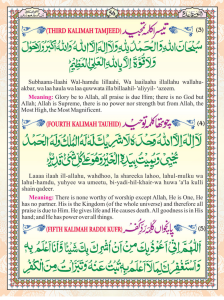 (THIRD KALIMAH TAMJEED) تیسرا کلمہ تمجید (3)
سُبْحَانَ اللهِ وَالْحَمْدُ لِلّٰهِ وَلَآ اِلٰهَ اِلَّا اللهُ وَاللهُ اَكْبَرُ وَلَا حَوْلَ
وَلَا قُوَّةَ اِلَّا بِاللهِ الْعَلِيِّ الْعَظِيْمِ
Subhaana-llaahi Wal-hamdu lillaahi, Wa laailaha illallahu wallahu-
akbar, wa laa haula wa laa quwwata illa billaahil-'aliyyil-'azeem.
Meaning: Glory be to Allah, all praise is due Him; there is no God but
Allah; Allah is Supreme, there is no power nor strength but from Allah, the
Most High, the Most Magnificent.
(FOURTH KALIMAH TAUHID) چوتھا کلمہ توحید (4)
لَآ اِلٰهَ اِلَّا اللهُ وَحْدَهٗ لَا شَرِيْكَ لَهٗ لَهُ الْمُلْكُ وَلَهُ الْحَمْدُ
يُحْيِيْ وَيُمِيْتُ بِيَدِهِ الْخَيْرُ وَهُوَ عَلٰى كُلِّ شَيْءٍ قَدِيْرٌ
Laaaa ilaah ill-allahu, wahdhou, la shareeka lahou, lahul-mulku wa
lahul-hamdu, yuhyee wa umeetu, bi-yadi-hil-khair-wa huwa 'a'la kulli
shain qadeer.
Meaning: There is none worthy of worship except Allah, He is One, He
has no partner. His is the Kingdom (of the whole universe) and therefore all
praise is due to Him. He gives life and He causes death. All goodness is in His
hand; and He has power over all things.
(FIFTH KALIMAH RADDI KUFR) پانچواں کلمہ رد کفر (5)
اَللّٰهُمَّ اِنِّيْ اَعُوْذُ بِكَ مِنْ اَنْ اُشْرِكَ بِكَ شَيْئًا وَّاَنَا اَعْلَمُ بِهٖ
وَاَسْتَغْفِرُكَ لِمَا لَآ اَعْلَمُ بِهٖ تُبْتُ عَنْهُ وَتَبَرَّأْتُ مِنَ الْكُفْرِ